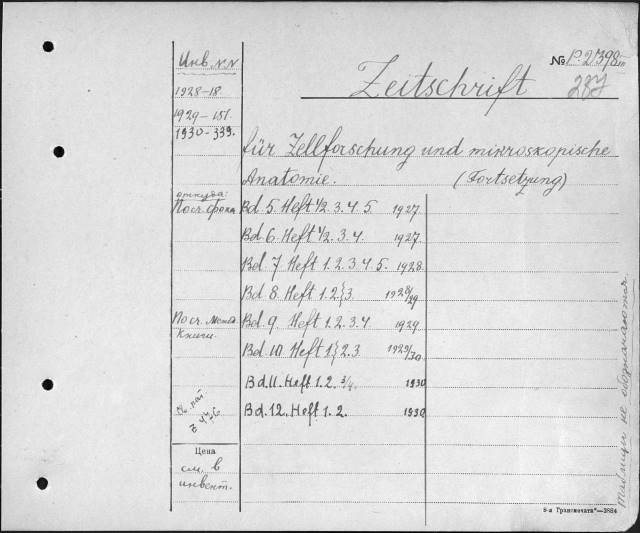 Инв. NN
1928-18.
1929-151.
1930-339.
№ P.2398III
Zeitschrift
für Zellforschung und mikroskopische
Anatomie. (Fortsetzung)
откуда:
Bd 5 Heft 1/2. 3. 4 5. 1927
Bd. 6 Heft 1/2. 3. 4. 1927.
Bd 7 Heft 1. 2. 3. 4 5. 1928
Bd 8 Heft 1. 2.} 3. 1928/29
Bd. 9 Heft 1. 2. 3. 4 1929
Книги.
Bd. 10 Heft 1.} 2. 3 1929/30
Bd. 11. Heft 1. 2. 3/4. 1930
Bd. 12. Heft 1. 2. 1930
Z 476
Цена
см. в
инвент.
таблицы не обозначаются.
8-я Транспечати"—3884